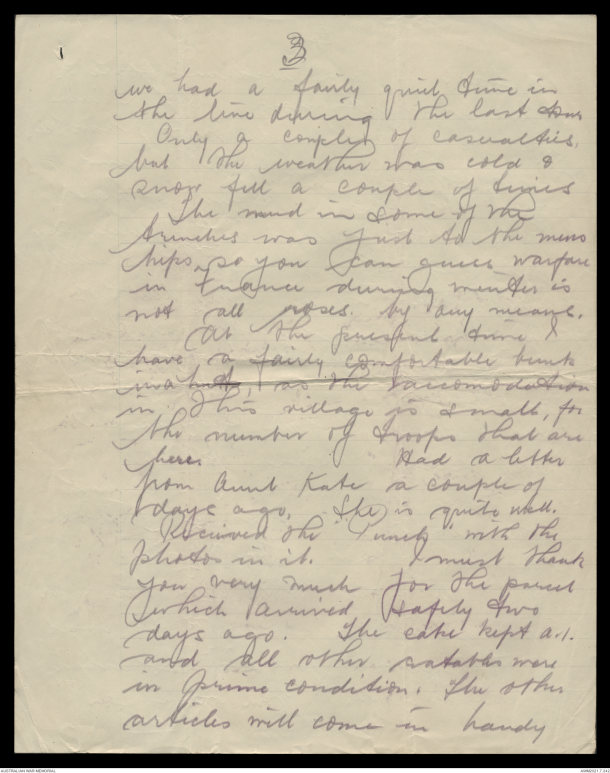 3
we had a fairly quiet time in
the line during the last tour
Only a couple of casualties,
but the weather was cold &
snow fell a couple of times
The mud in some of the
trenches was just to the mens
hips, so you can guess warfare
in France during winter is
not all roses. by any means.
At the present time I
have a fairly comfortable bunk
in a hut, as the accomodation
in this village is small, for
the number of troops that are
here. Had a letter
from Aunt Kate a couple of
days ago, She is quite well.
Received the "Punch" with the
photos in it. I must thank
you very much for the parcel
which arrived safely two
days ago. The cake kept a.1.
and all other eatables were
in prime condition. The other
articles will come in handy
AUSTRALIAN WAR MEMORIAL